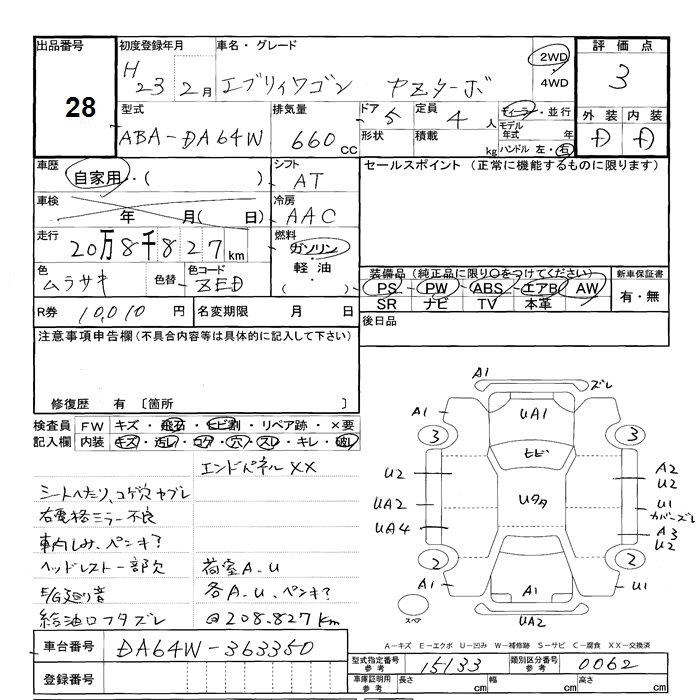 出品番号 初度登録年月 車名・グレード 2WD・4WD 評価点
28 H 23 2月 エブリィワゴン PZターボ 3
型式 排気量 ドア 5 定員 4人 ディーラー・並行 外装 内装
ABA-DA64W 660cc 形状 積載 kg モデル年式 年 D D
ハンドル 左・右
車歴 自家用・( ) シフト AT セールスポイント(正常に機能するものに限ります)
車検 年 月( 日) 冷房 AAC
走行 20万8千827km 燃料 ガソリン・軽油・( )
色 ムラサキ 色替 色コード ZED
装備品(純正品に限り○をつけてください) 新車保証書
PS・PW・ABS・エアB・AW 有・無
SR ナビ TV 本革
R券 10,010円 名変期限 月 日 後日品
注意事項申告欄(不具合内容等は具体的に記入して下さい)
修復歴 有 〔箇所
検査員記入欄 FW キズ・飛石・ヒビ割・リペア跡・×要
内装 キズ・汚レ・コゲ・穴・スレ・キレ・破レ
エンドパネルXX
シートへたり、コゲ穴ヤブレ
右電格ミラー不良
車内しみ、ペンキ?
ヘッドレスト一部欠 荷室A.U
E/G廻り音 各A.U、ペンキ?
給油口フタズレ @208.827km
A1 ズレ
A1 UA1
3 3
ヒビ
U2 A2
U2
UA2 Uタタ U1
カバーズレ
UA4 A3
U2
2 2
A1 A1 U1
スペア UA2
A-キズ E-エクボ U-凹み W-補修跡 S-サビ C-腐食 XX-交換済
車台番号 DA64W-363350
型式指定番号 参考 15133 類別区分番号 参考 0062
登録番号 車庫証明用 参考 長さ cm 幅 cm 高さ cm